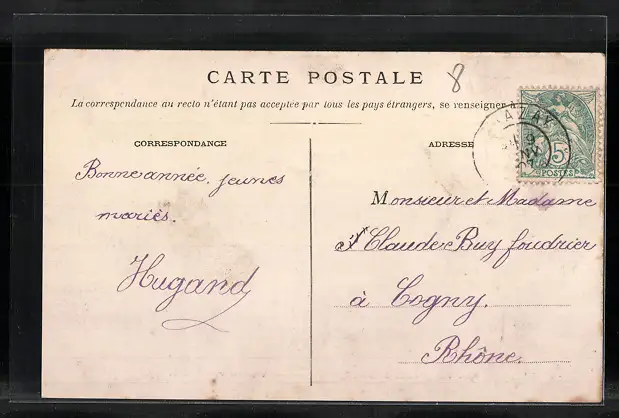 CARTE POSTALE
8
La correspondance au recto n'étant pas acceptée par tous les pays étrangers, se renseigner à
CORRESPONDANCE
ADRESSE
Bonne année. jeunes
mariés.
Hugand
Monsieur et Madame
Claude Buy foudrier
à Cogny.
Rhône.
5
POSTES